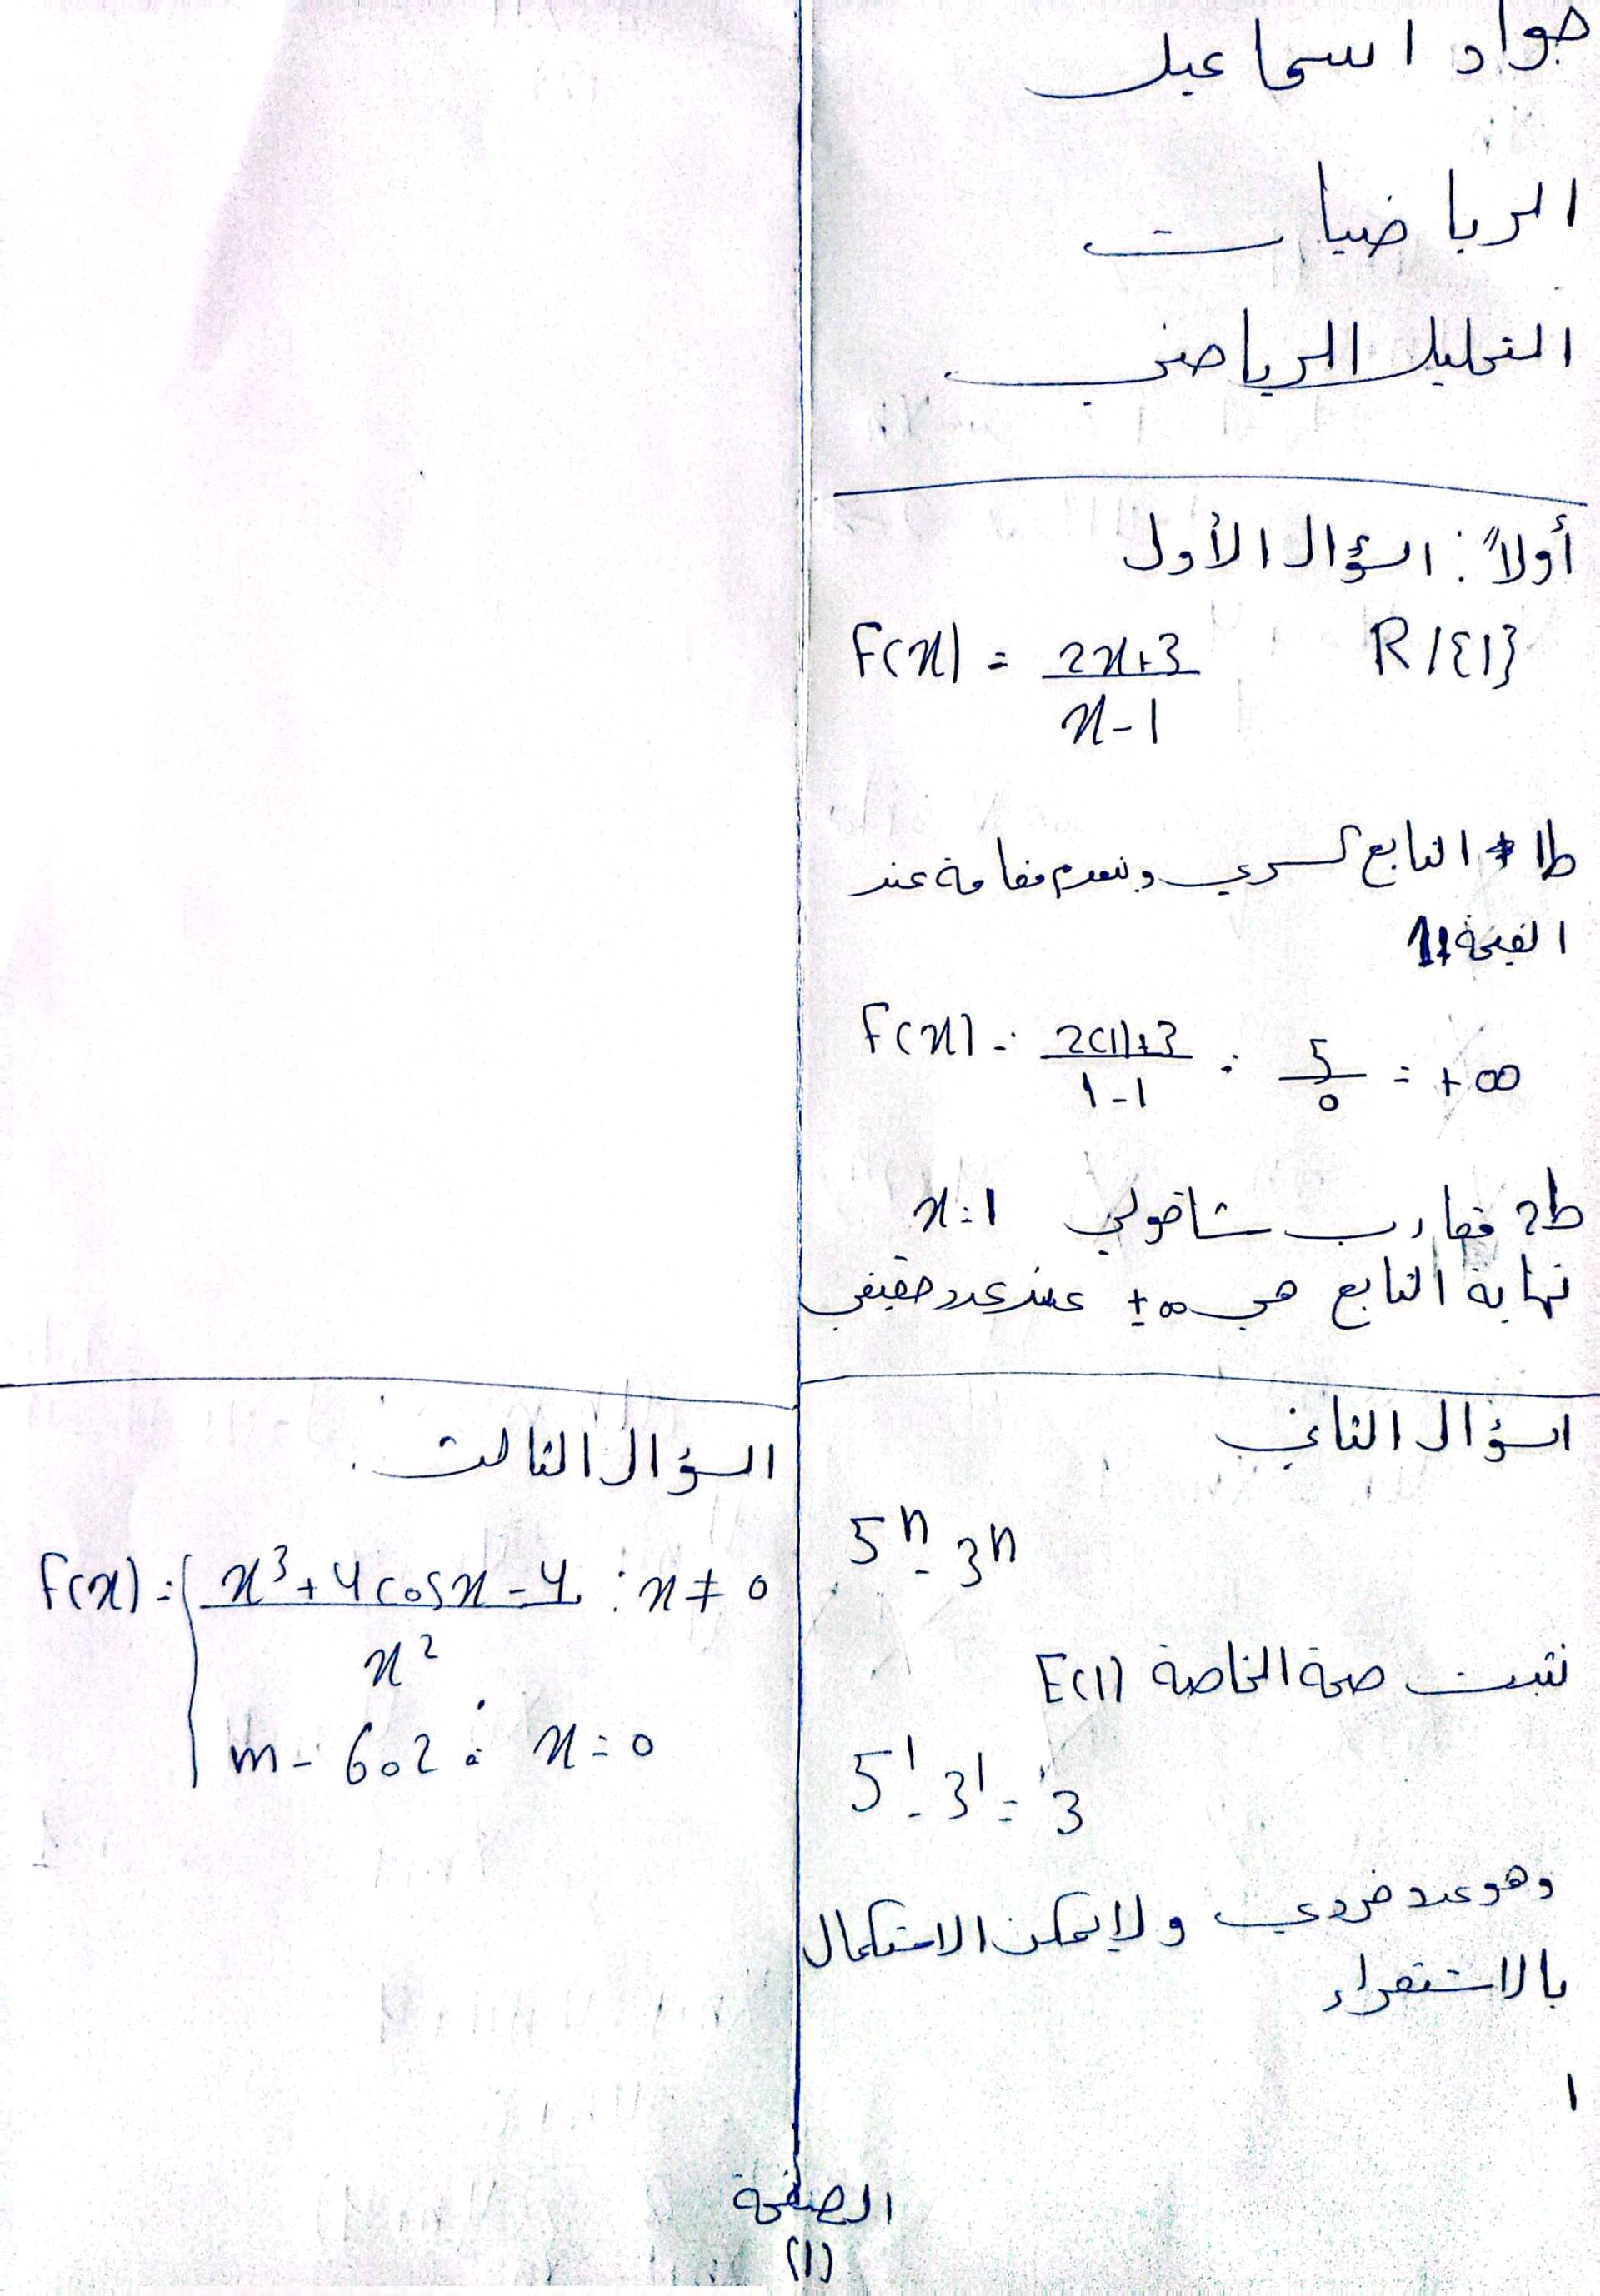 جواد اسماعيل
الرياضيات
التحليل الرياضي
أولاً: السؤال الأول
F(x) = (2x+3)/(x-1) R/{1}
ط1 التابع كسري وينعدم مقامة عند
القيمة 1
F(x) = (2(1)+3)/(1-1) = 5/0 = +∞
ط2 مقارب شاقولي x=1
نهاية التابع هي ±∞ عند عدد حقيقي
السؤال الثاني
5^n - 3^n
نثبت صحة الخاصة E(1)
5^1 - 3^1 = 3
وهو عدد فردي ولا يمكن الاستكمال
بالاستقراء
السؤال الثالث
F(x) = { (x^3+4cosx-4)/x^2 : x≠0
m-602 : x=0
الصفحة
(1)